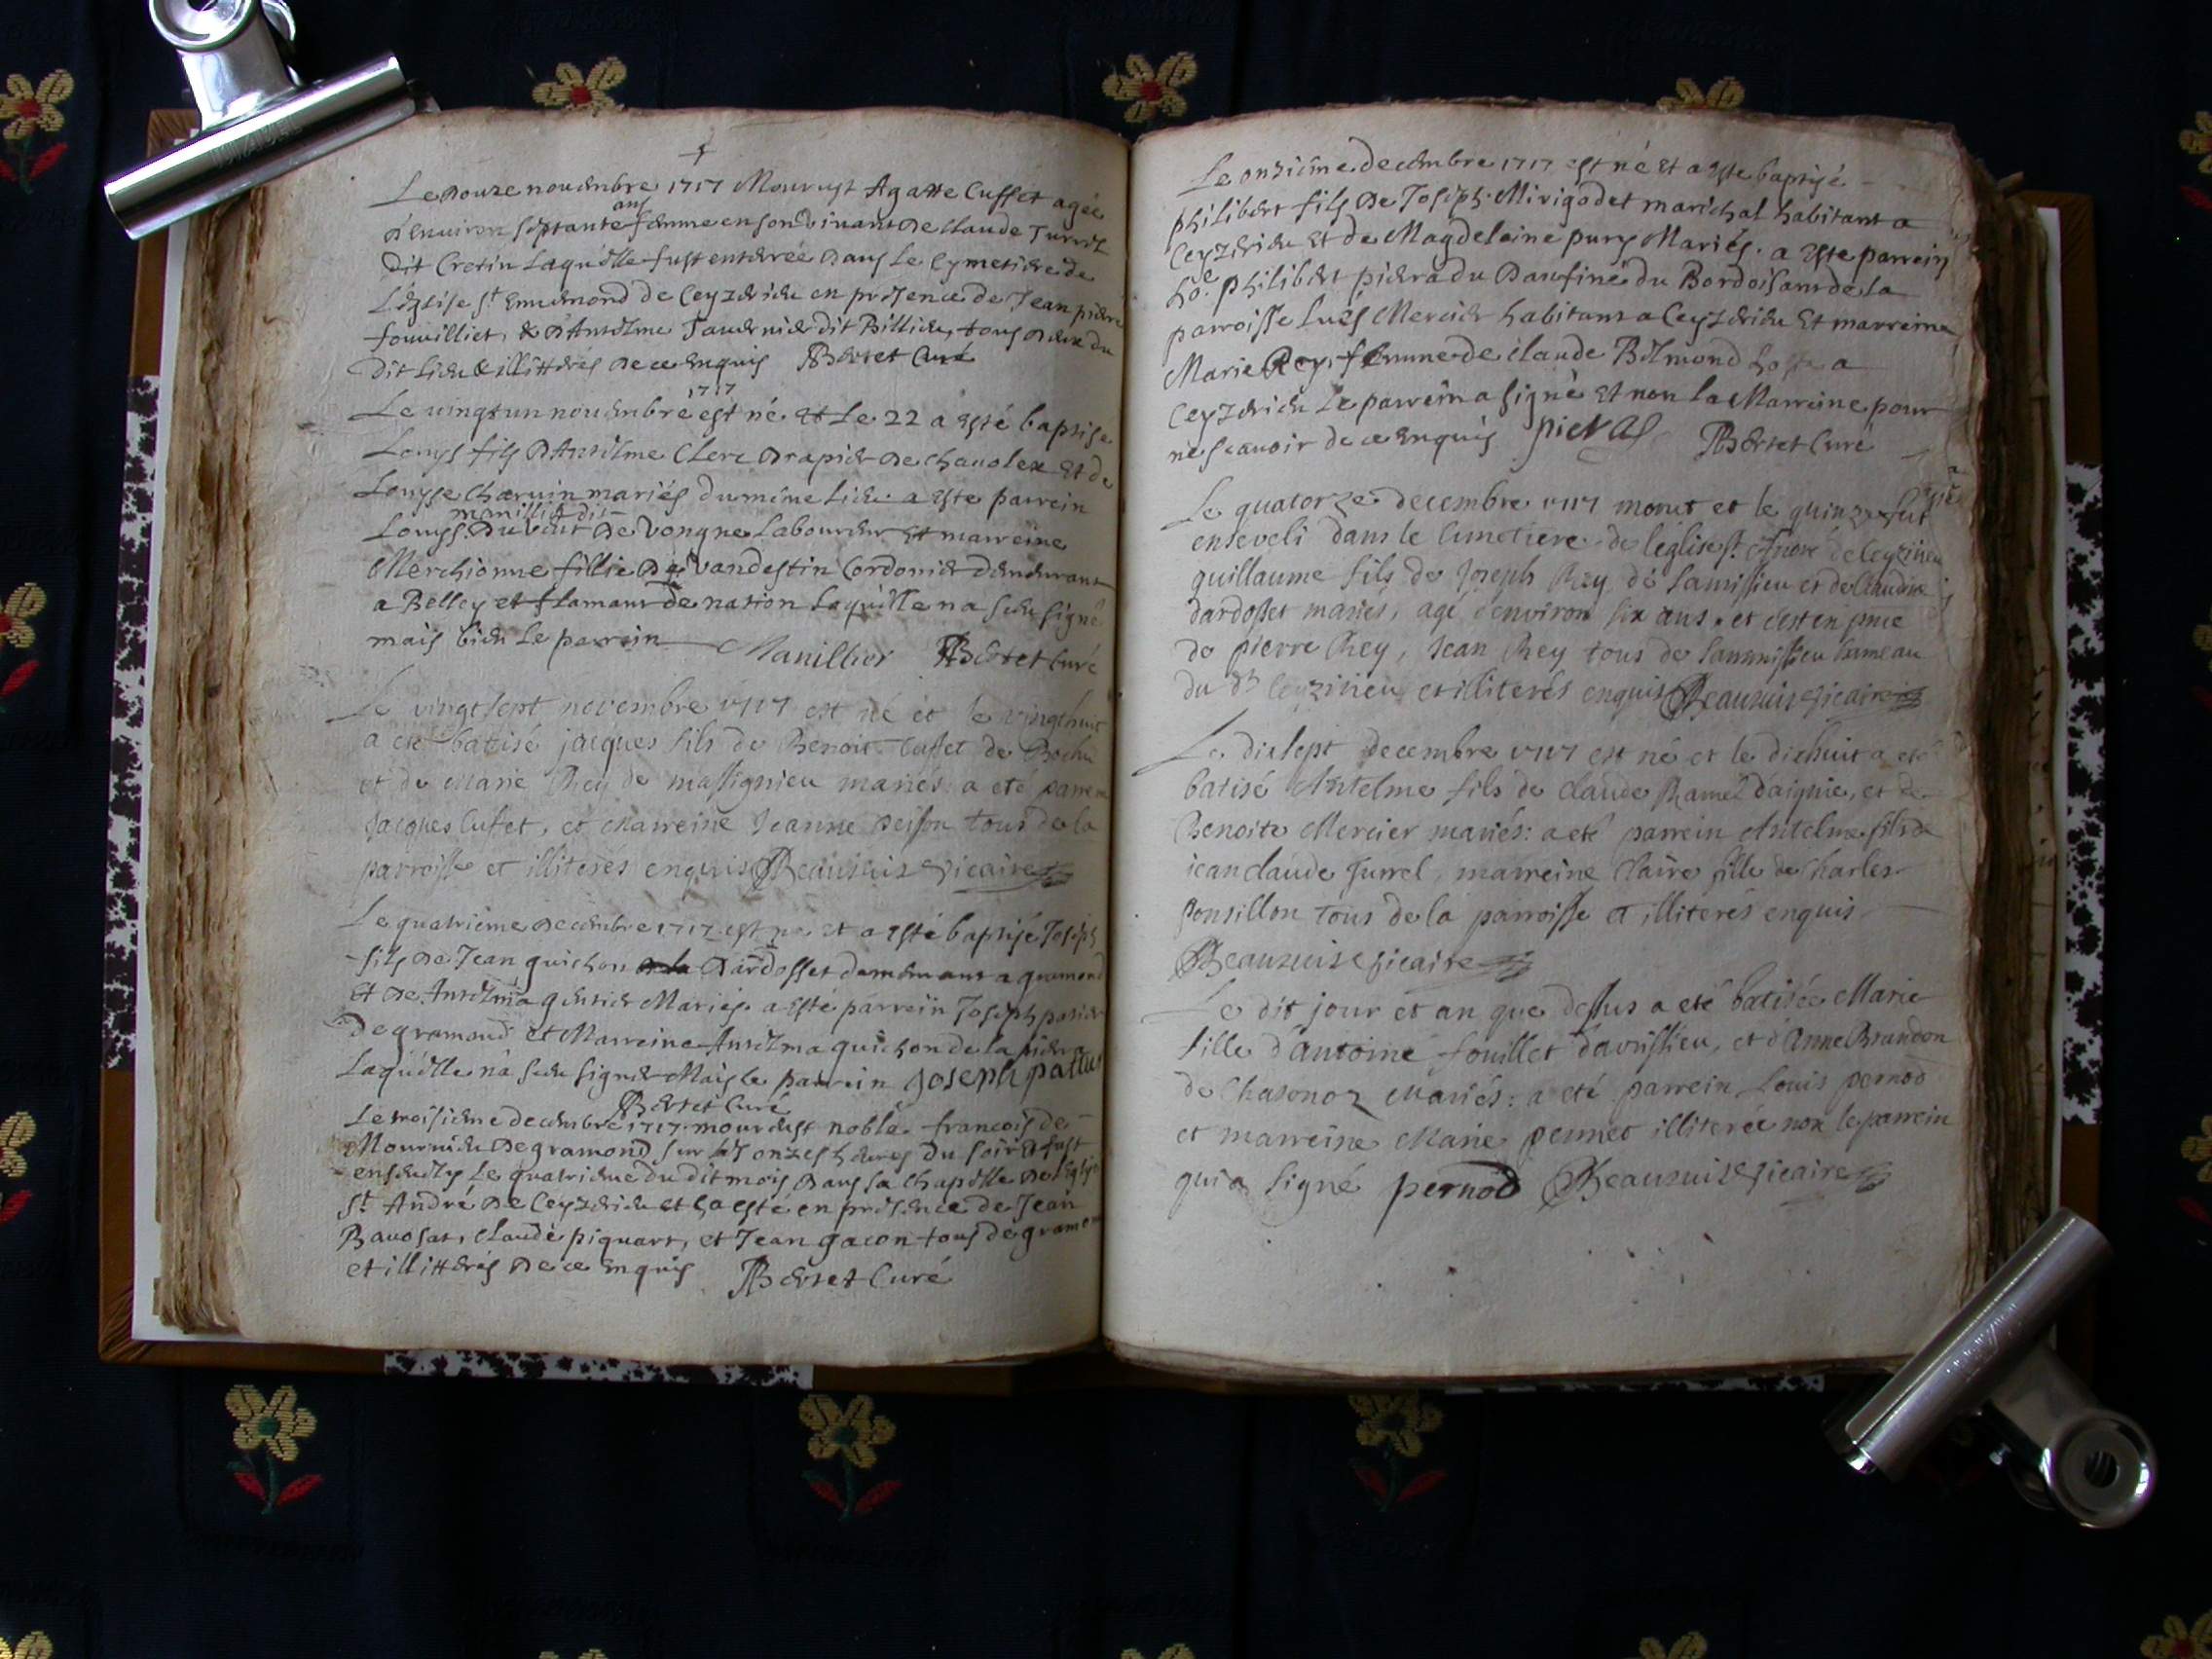 Le douze nouembre 1717 Mourust Agatte Cusset agée
d'enuiron septante ans femme en son viuant de Claude Jurret
dit Cretin laquelle fust enterrée dans le Cymetiere de
L'église St de Ceyzerieu en presence de Jean pierre
fouvilliet, & d'Antelme Tauernier dit Billieu, tous deux du
dit lieu & illitterés de ce enquis Bertet Curé
1717
Le vingt un nouembre est né et Le 22 a esté baptise
Louys fils d'Antelme Clerc drapier de chauolex et de
Louyse mariés du même lieu a este parrein
manillier dit
Louys Duvent de Vongne Laboureur et marreine
Merchionne fillie de vandestin Cordonier demeurant
a Belley et flamant de nation laquelle na sceu signé
mais bien le parrein Manillier Bertet Curé
Le vingt sept novembre 1717 est né et le vingthuit
a eté batisé jacques fils de Benoit Cusset de
et de Marie Rey de massignieu mariés a eté parrein
Jacques Cusset, et Marreine Jeanne peisson tous de la
parroisse et illiterés enquis Beauvais Vicaire
Le quatrième decembre 1717 est né et a esté baptisé Joseph
fils de Jean guichon Dardosset demeurant a gramond
Et de Antelma Mariés a esté parrein Joseph
de gramond et Marreine Antelma guichon de la
Laquelle na sceu signer Mais le parrein Joseph
Bertet Curé
Le troisieme decembre 1717 mourust noble francois de
Mournieu de gramond sur les onzes heures du soir et fust
enseuely le quatrieme du dit mois dans la chapelle de l'Eglise
St André de Ceyzerieu et ça esté en presence de Jean
Bauosat, Claude piquart, et Jean gacon tous de gramond
et illitterés de ce enquis Bertet Curé
Le onzième decembre 1717 est né et a este baptisé
philibert fils de Joseph Mirigodet marichal habitant a
Ceyzerieu et de Magdeleine pury Mariés. a este parrein
philibert piera du Daufiné du Bordoisant de la
parroisse Mercier habitant a Ceyzerieu Et marreine
Marie Rey femme de claude Belmond a
Ceyzerieu Le parrein a signé et non la Marreine pour
ne scauoir de ce enquis Bertet Curé
Le quatorze decembre 1717 mourut et le quinze fut
enseveli dans le cimetiere de l'eglise St André de Ceyzirieu
guillaume fils de Joseph Rey de Samissieu et de Claudine
dardosset mariés, agé d'environ six ans, et c'est en pnce
de pierre Rey, Jean Rey tous de Sammissieu hameau
du dt Ceyzirieu et illiterés enquis Beauvais Vicaire
Le disept decembre 1717 est né et le dixhuit a eté
batisé Antelme fils de claude Ramel d'aignie, et de
Benoite Mercier mariés: a eté parrein Antelme fils de
jean claude Jurrel, marreine Claire fille de Charles
ponsillon tous de la parroisse et illiterés enquis
Beauvais Vicaire
Le dit jour et an que dessus a eté batisée Marie
fille d'antoine fouillet d'avrissieu, et d'Anne Brandon
de Chasonoz Mariés: a eté parrein Louis pernod
et marreine Marie pennet illiterée non le parrein
qui a signé pernod Beauvais Vicaire